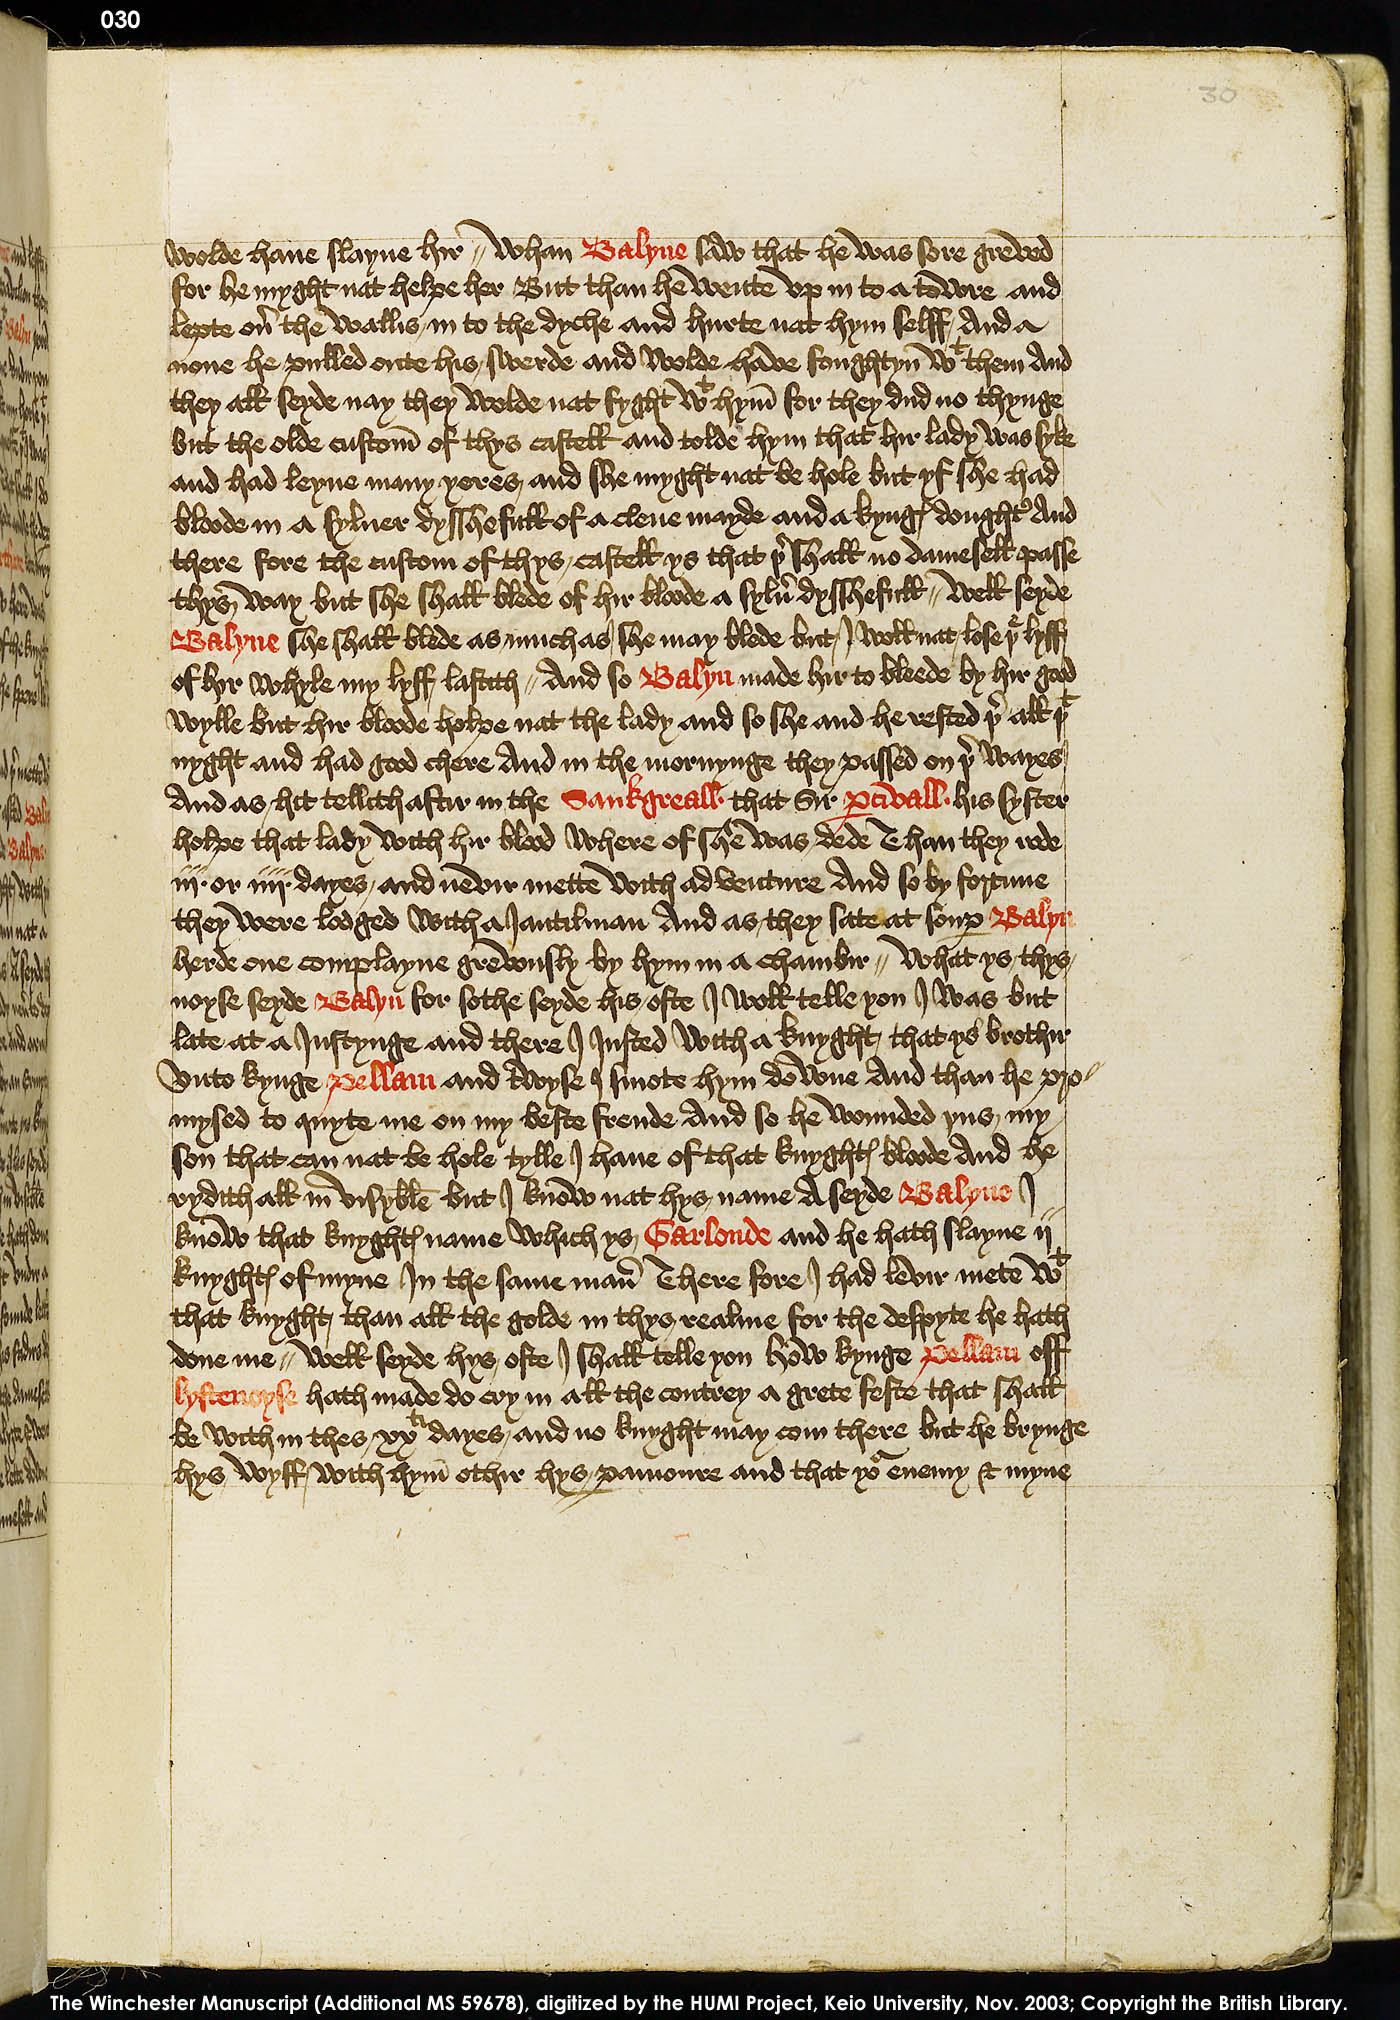 030
30
wolde haue slayne hir // Whan Balyne saw that he was sore greved
for he myght nat helpe her But than he wente up in to a towre and
lepte ou͛ the wallis in to the dyche and hurte nat hym selff And a
none he pulled oute his swerde and wolde have foughtyn wᵗ them And
they all seyde nay they wolde nat fyght wᵗ hym̄ for they dud no thynge
but the olde custom̄ of thys castell and tolde hym that hir lady was syke
and had leyne many yeres and she myght nat be hole but yf she had
bloode in a syluer dysshefull of a clene mayde and a kyngꝭ doughtˀ And
there fore the custom of thys castell ys that þ͛ shall no damesell passe
thys way but she shall blede of hir bloode a sylu͛ dysshefull // Well seyde
Balyne she shall blede as much as she may blede but I woll nat lose þᵉ lyff
of hyr whyle my lyff lastith // And so Balyn made hir to bleede by hir good
wylle but hir bloode holpe nat the lady and so she and he rested þ͛ all þᵗ
nyght and had good chere And in the mornynge they passed on þ͛ wayes
And as hit tellith aftir in the Sankgreall · that Sir ꝑcivall · his syster
holpe that lady with hir blood where of she was dede Than they rode
iij · or iiij · dayes and nevir mette with adventure And so by fortune
they were lodged with a Jantilman And as they sate at souꝑ Balyn
herde one complayne grevously by hym in a chambir // What ys thys
noyse seyde Balyn for sothe seyde his oste I woll telle you I was but
late at a Justynge and there I Justed with a knyght that ys brothir
vnto kynge Pellam and twyse I smote hym downe And than he pro //
mysed to quyte me on my beste frende And so he wounded yus my
son that can nat be hole tylle I haue of that knyghtꝭ bloode And he
rydith all in visyble but I know nat hys name A seyde Balyne I
know that knyghtꝭ name which ys Garlonde and he hath slayne ij
knyghtꝭ of myne In the same man͛ There fore I had levir mete wᵗ
that knyght than all the golde in thys realme for the despyte he hath
done me // Well seyde hys oste I shall telle you how kynge Pellam off
lystenoyse hath made do cry in all the contrey a grete feste that shall
be with in thes xxᵗⁱ dayes and no knyght may com there but he brynge
hys wyff with hym̄ othir hys paramoure and that yoʳ enemy & myne
The Winchester Manuscript (Additional MS 59678), digitized by the HUMI Project, Keio University, Nov. 2003; Copyright the British Library.